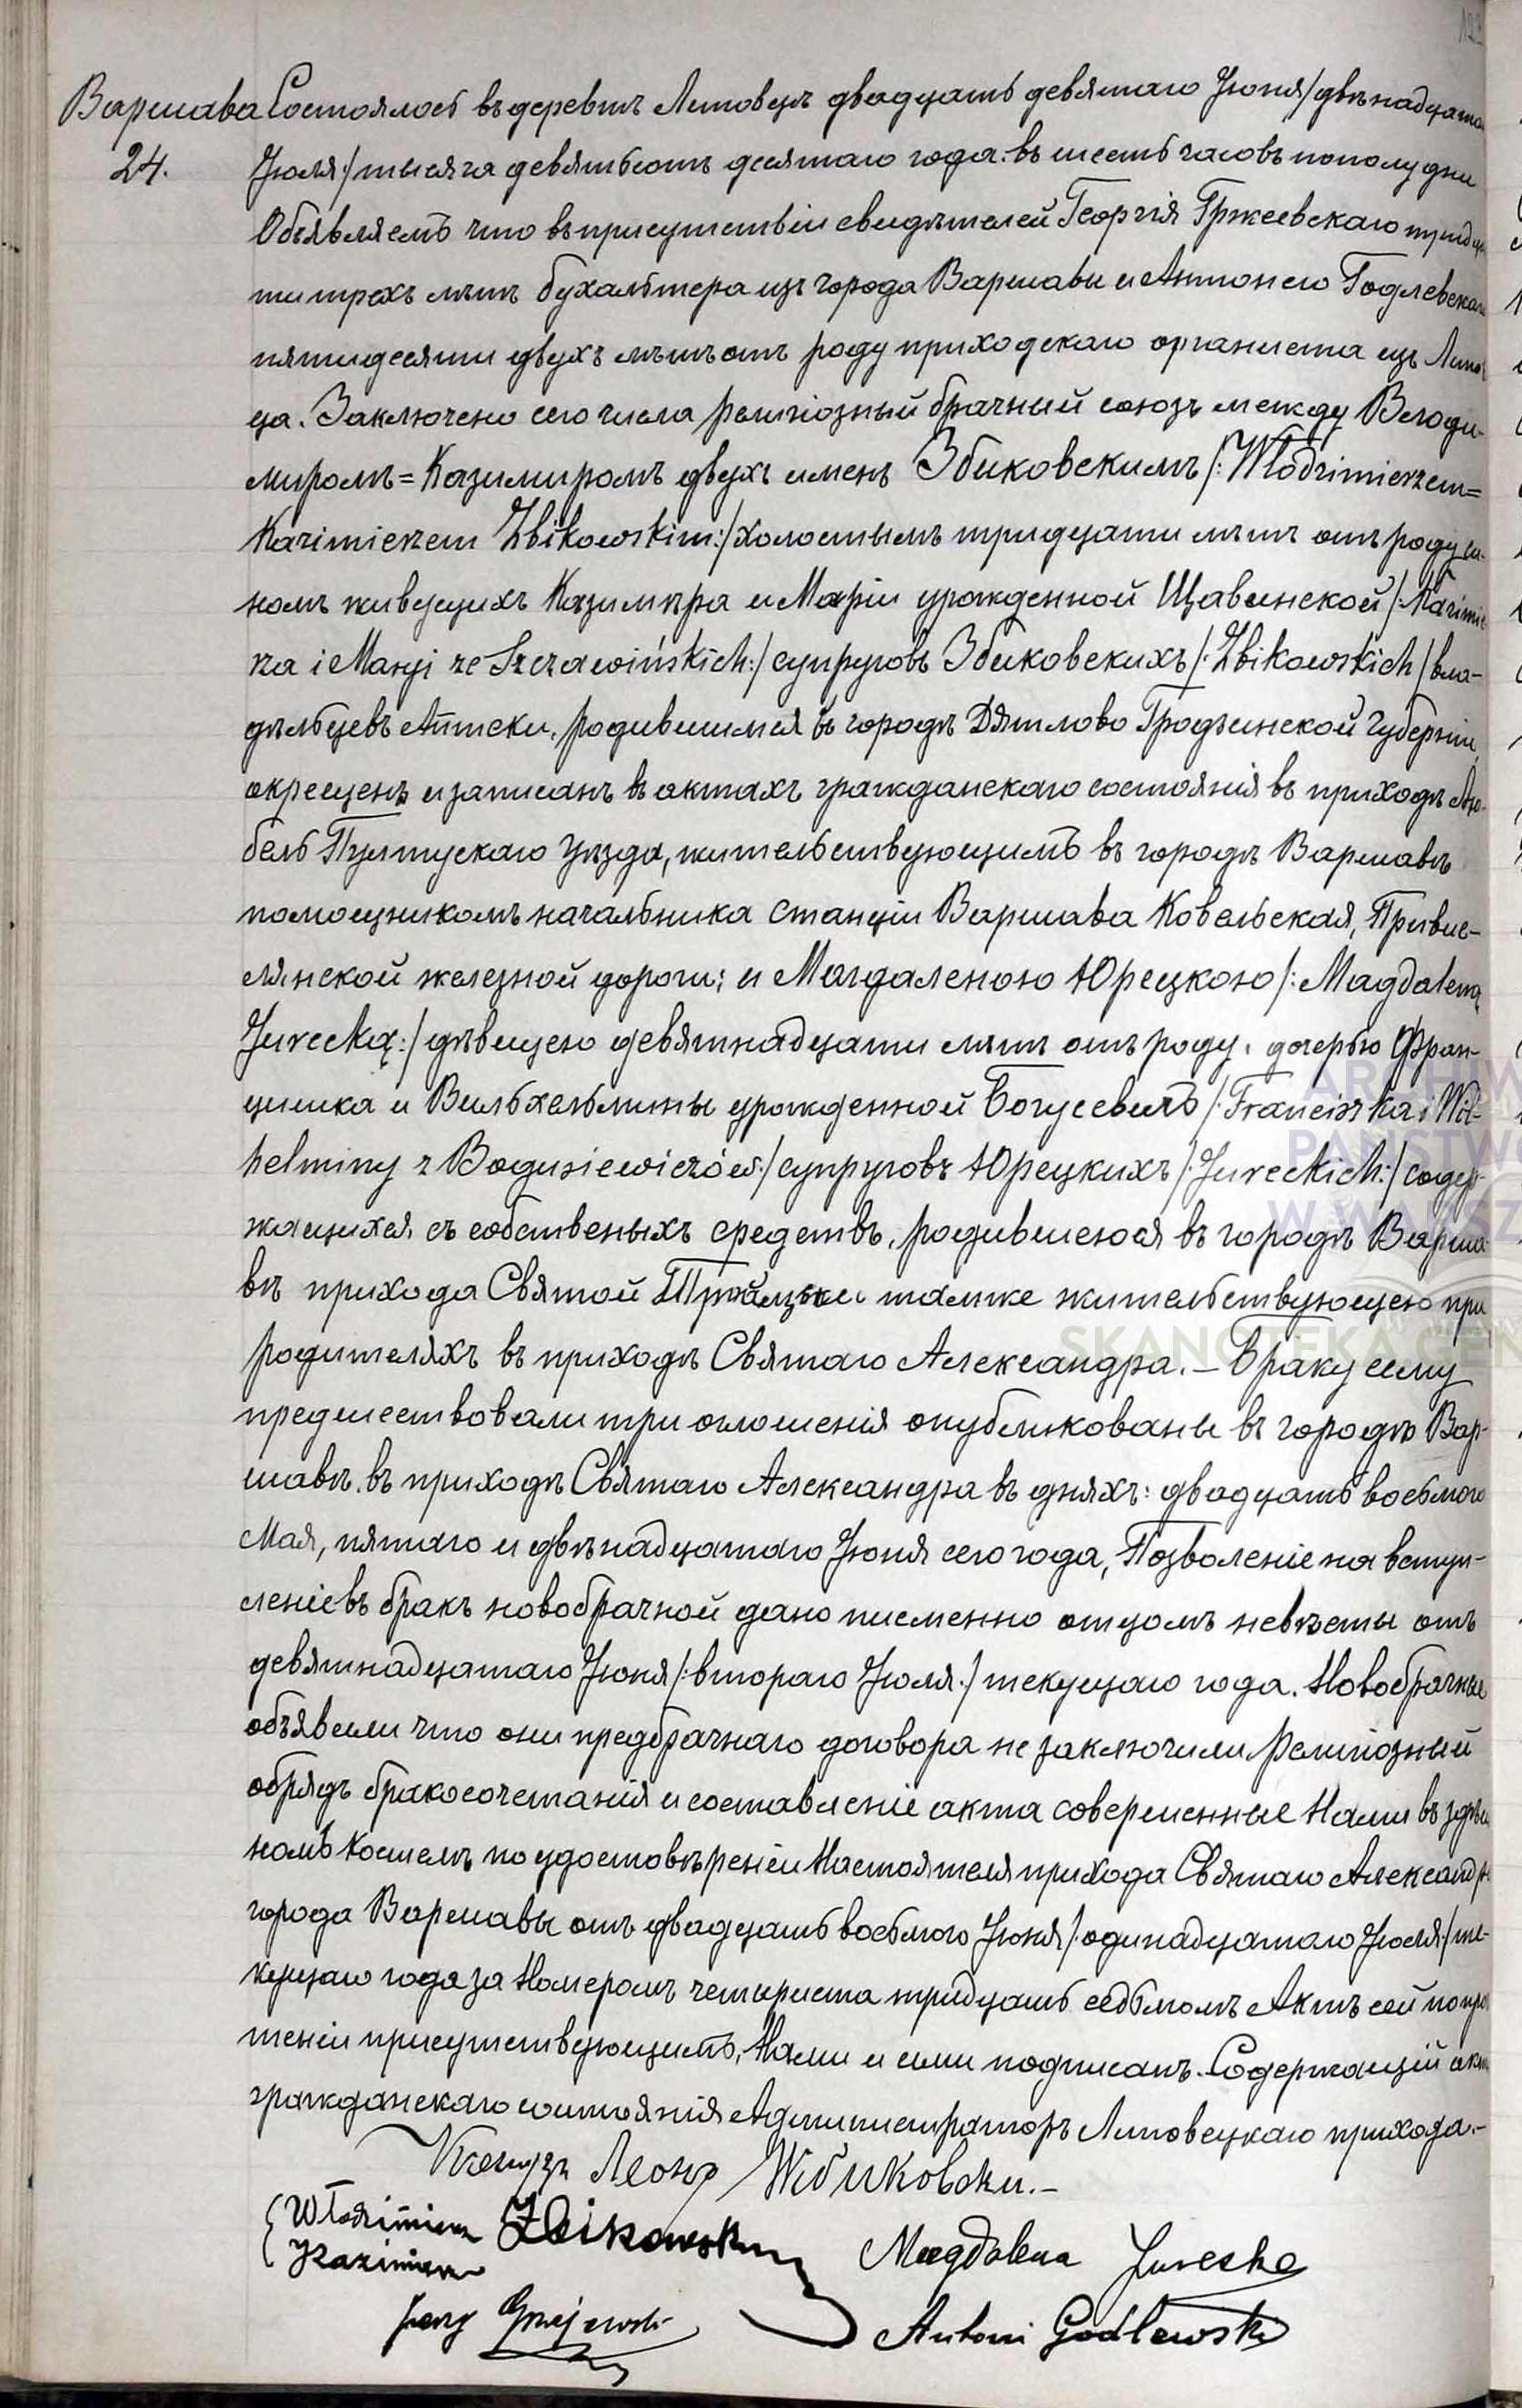 Варшава
24.
Состоялось въ деревнѣ Литовецъ двадцать девятаго Іюня /двѣнадцата
Іюля:/ тысяча девятьсотъ десятаго года. въ шесть часовъ пополудни
Объявляемъ что въ присутствіи свидѣтелей Георгія Гржеевскаго тридца
ти трехъ лѣтъ бухалтьтера изъ города Варшавы и Антонего Годлевскаго
пятидесяти двухъ лѣтъ отъ роду приходскаго органиста изъ Литов
ца. Заключено сего числа религіозный брачный союзъ между Влоди-
миромъ=Казимиромъ двухъ именъ Збиковскимъ /:Włodzimierzem=
Kazimierzem Zbikowskim:/ холостымъ тридцати лѣтъ отъ роду сы-
номъ живущихъ Казимѣра и Маріи урожденной Щавинской /:Kazimie
rza i Maryi ze Szczawińskich:/ супруговъ Збиковскихъ /:Zbikowskich/ вла-
дѣльцевъ Аптеки, родившимся въ городѣ Дятлово Гродзинской губерніи,
окрещенъ и записанъ въ актахъ гражданскаго состоянія въ приходѣ Лю-
бель Пултускаго уѣзда, жительствующимъ въ городѣ Варшавѣ
помощникомъ начальника станціи Варшава Ковельская, Привис-
лянской железной дороги; и Магдаленою Юрецкою /:Magdaleną
Jurecką:/ дѣвицею девятнадцати лѣтъ отъ роду, дочерью Фран-
цишка и Вильхельмины урожденной Богусевичъ /:Franciszka i Wil-
helminy z Bogusiewiczów:/ супруговъ Юрецкихъ /:Jureckich:/ содер-
жащихся съ собственыхъ средствъ, родившеюся въ городѣ Варша-
вѣ прихода Святой Тройцы тамже жительствующею при
родителяхъ въ приходѣ Святаго Александра. — Браку сему
предшествовали три оглошенія опубликованы въ городѣ Вар-
шавѣ въ приходѣ Святаго Александра въ дняхъ: двадцать восьмого
Мая, пятаго и двѣнадцатаго Іюня сего года, Позволеніе на вступ-
леніе въ бракъ новобрачной дано писменно отцомъ невѣсты отъ
девятнадцатаго Іюня /:втораго Іюля:/ текущаго года. Новобрачные
объявили что они предбрачнаго договора не заключили религіозный
обрядъ бракосочетанія и составленіе акта совершенные Нами въ здѣш
номъ костелѣ по удостовѣреніи Настоятеля прихода Святаго Александр
города Варшавы отъ двадцать восьмого Іюня /:одинадцатаго Іюля:/ те-
кущаго года за Номеромъ четыриста тридцать седьмомъ Актъ сей по про
теніи присутствующимъ, Нами и ими подписанъ. Содержащій акты
гражданскаго состоянія Администраторъ Литовецкаго прихода.—
Ксендзъ Леонъ Жбиковски.—
Włodzimierz Zbikowski
Kazimierz
Magdalena Jurecka
Jerzy Grzejewski
Antoni Godlewski